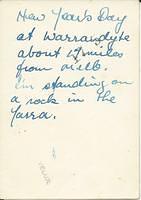 New Year's Day
at Warrandyte
about 17 miles
from Melb.
I'm standing on
a rock in the
Yarra.